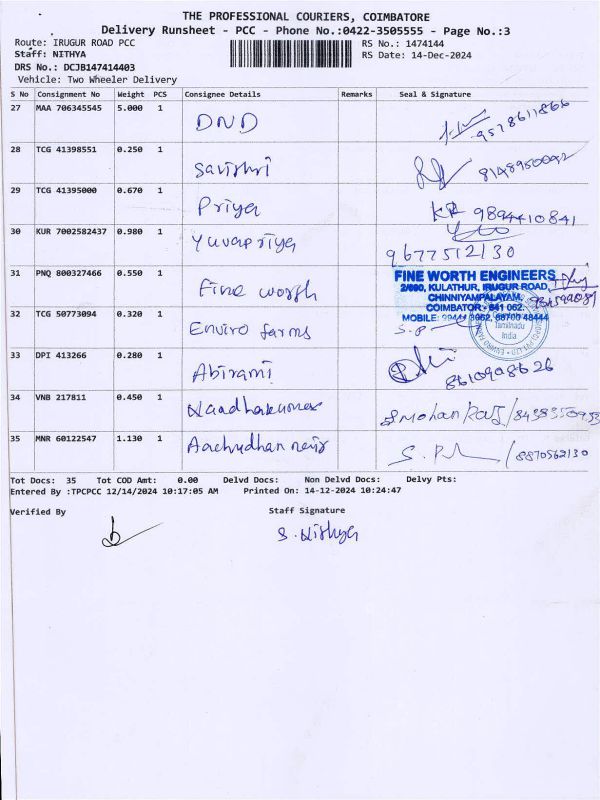 THE PROFESSIONAL COURIERS, COIMBATORE
Delivery Runsheet - PCC - Phone No.:0422-3505555 - Page No.:3
Route: IRUGUR ROAD PCC
RS No.: 1474144
Staff: NITHYA
RS Date: 14-Dec-2024
DRS No.: DCJB147414403
Vehicle: Two Wheeler Delivery
S No Consignment No Weight PCS Consignee Details Remarks Seal & Signature
27 MAA 706345545 5.000 1 DND 9578611866
28 TCG 41398551 0.250 1 Savithri 8148950092
29 TCG 41395000 0.670 1 Priya KR 9894410841
30 KUR 7002582437 0.980 1 Yuvapriya 9677512130
31 PNQ 800327466 0.550 1 Fine worth
FINE WORTH ENGINEERS
2/690, KULATHUR, IRUGUR ROAD,
CHINNIYAMPALAYAM,
COIMBATOR - 641 062.
MOBILE: 99444 3062, 88700 48444
32 TCG 50773094 0.320 1 Enviro farms S.P
Tamilnadu
India
33 DPI 413266 0.280 1 Abirami 8610908626
34 VNB 217811 0.450 1 Mohan Raj /8438350953
35 MNR 60122547 1.130 1 /8870562130
Tot Docs: 35 Tot COD Amt: 0.00 Delvd Docs: Non Delvd Docs: Delvy Pts:
Entered By :TPCPCC 12/14/2024 10:17:05 AM Printed On: 14-12-2024 10:24:47
Verified By
Staff Signature
S. Nithya